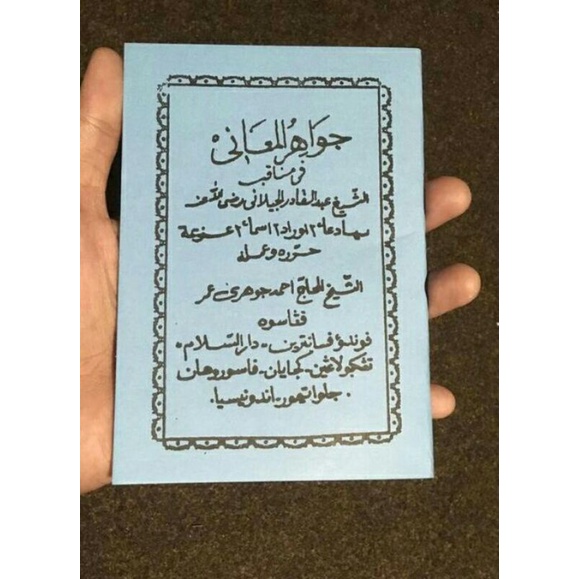 جواهر المعانى
فى مناقب
الشيخ عبد القادر الجيلانى رضى الله عنه
بهادعا٢ اوراد٢ اسما٢ عزيمة
حرره وعمله
الشيخ الحاج احمد جوهرى عمر
فاسوه
فوندؤ فسانترين - دار السلام -
تڠكولاڠين - كجايان - فاسوروهان
جاوا تيمور - اندونيسيا .